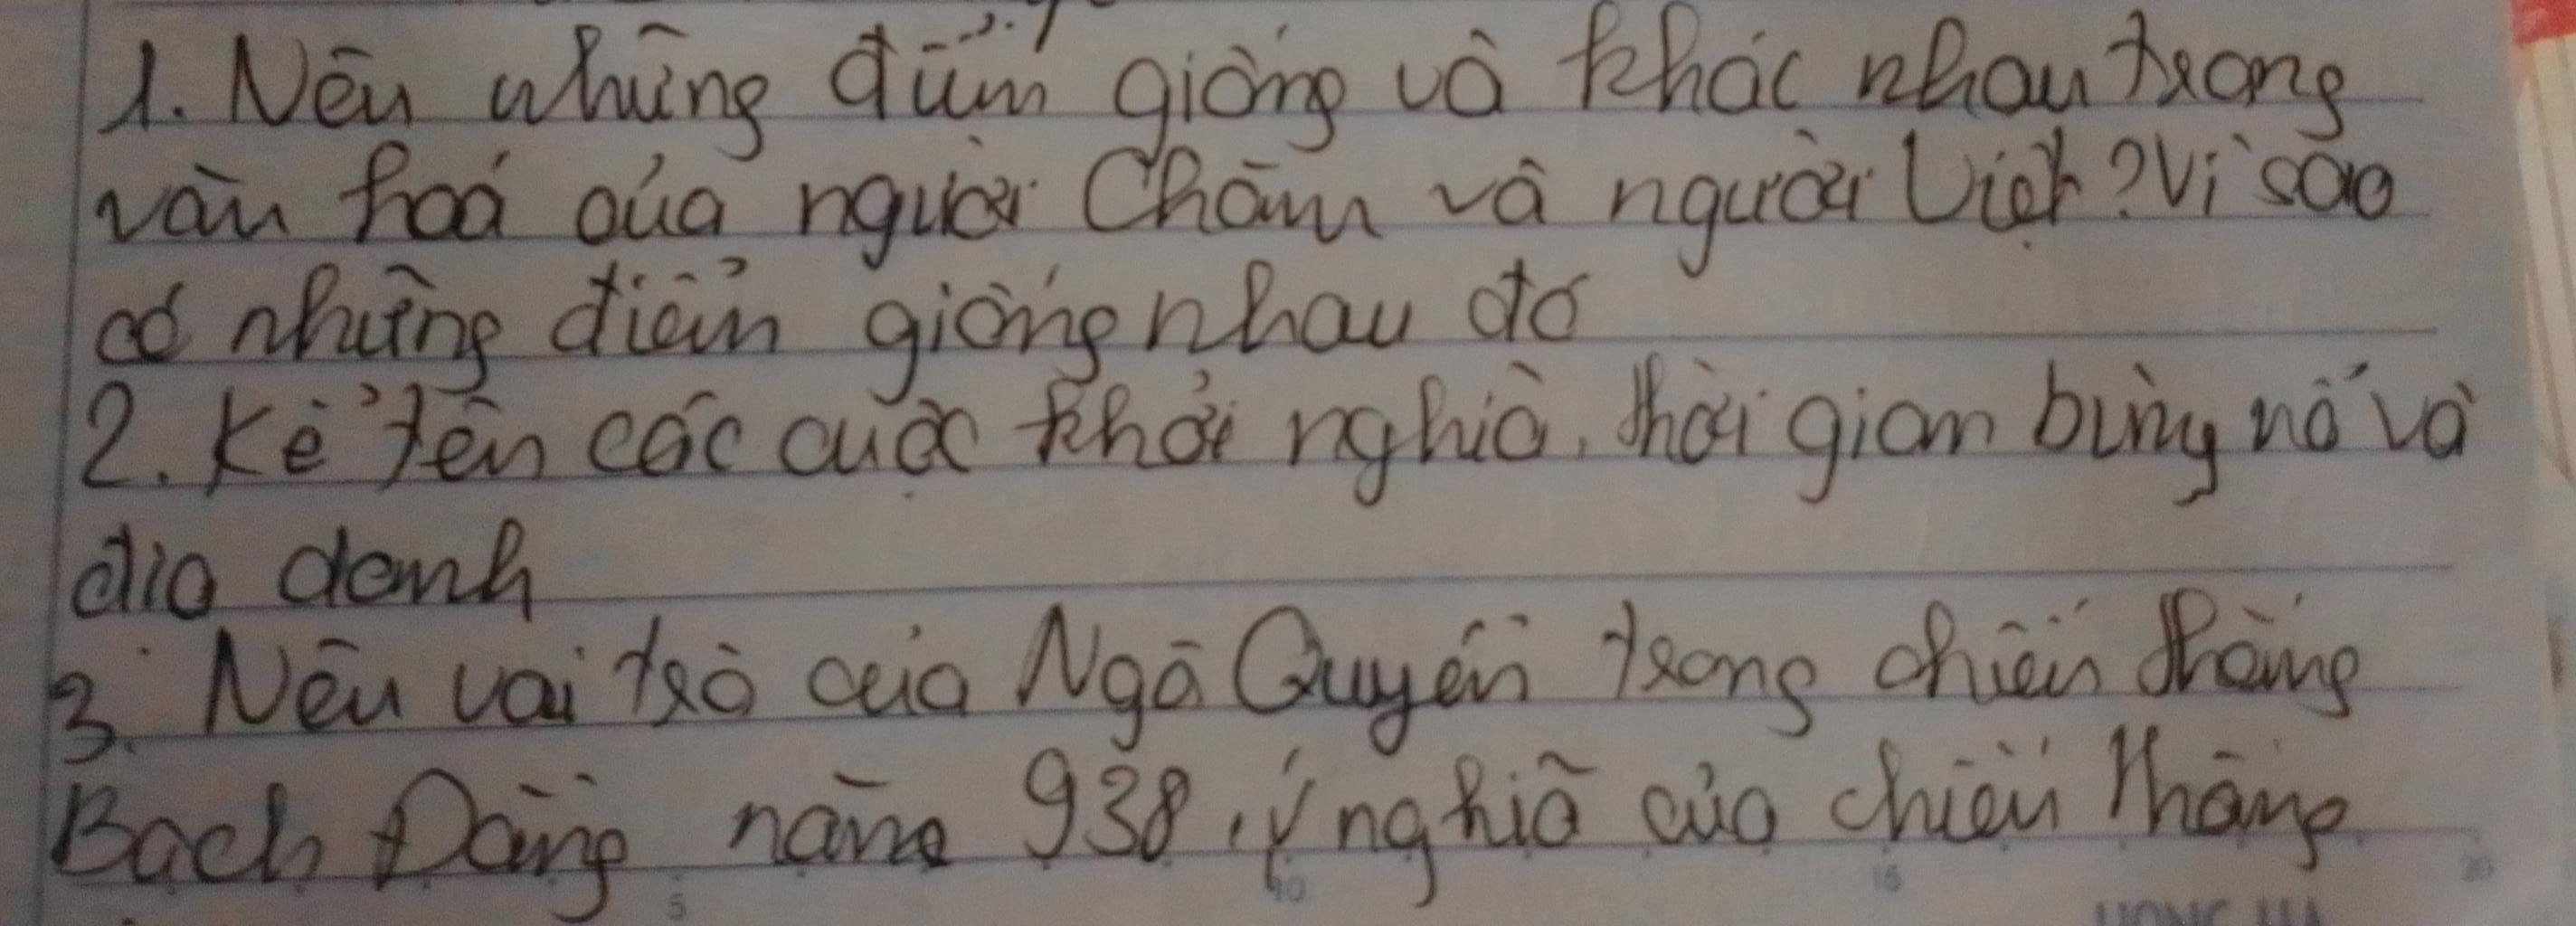 1. Nêu những điểm giống và khác nhau trong
văn hoá của người Chăm và người Việt? Vì sao
có những điểm giống nhau đó
2. Kể tên các cuộc khởi nghĩa, thời gian bùng nổ và
địa danh
3. Nêu vai trò của Ngô Quyền trong chiến thắng
Bạch Đằng năm 938, ý nghĩa của chiến thắng
5 10 15 20